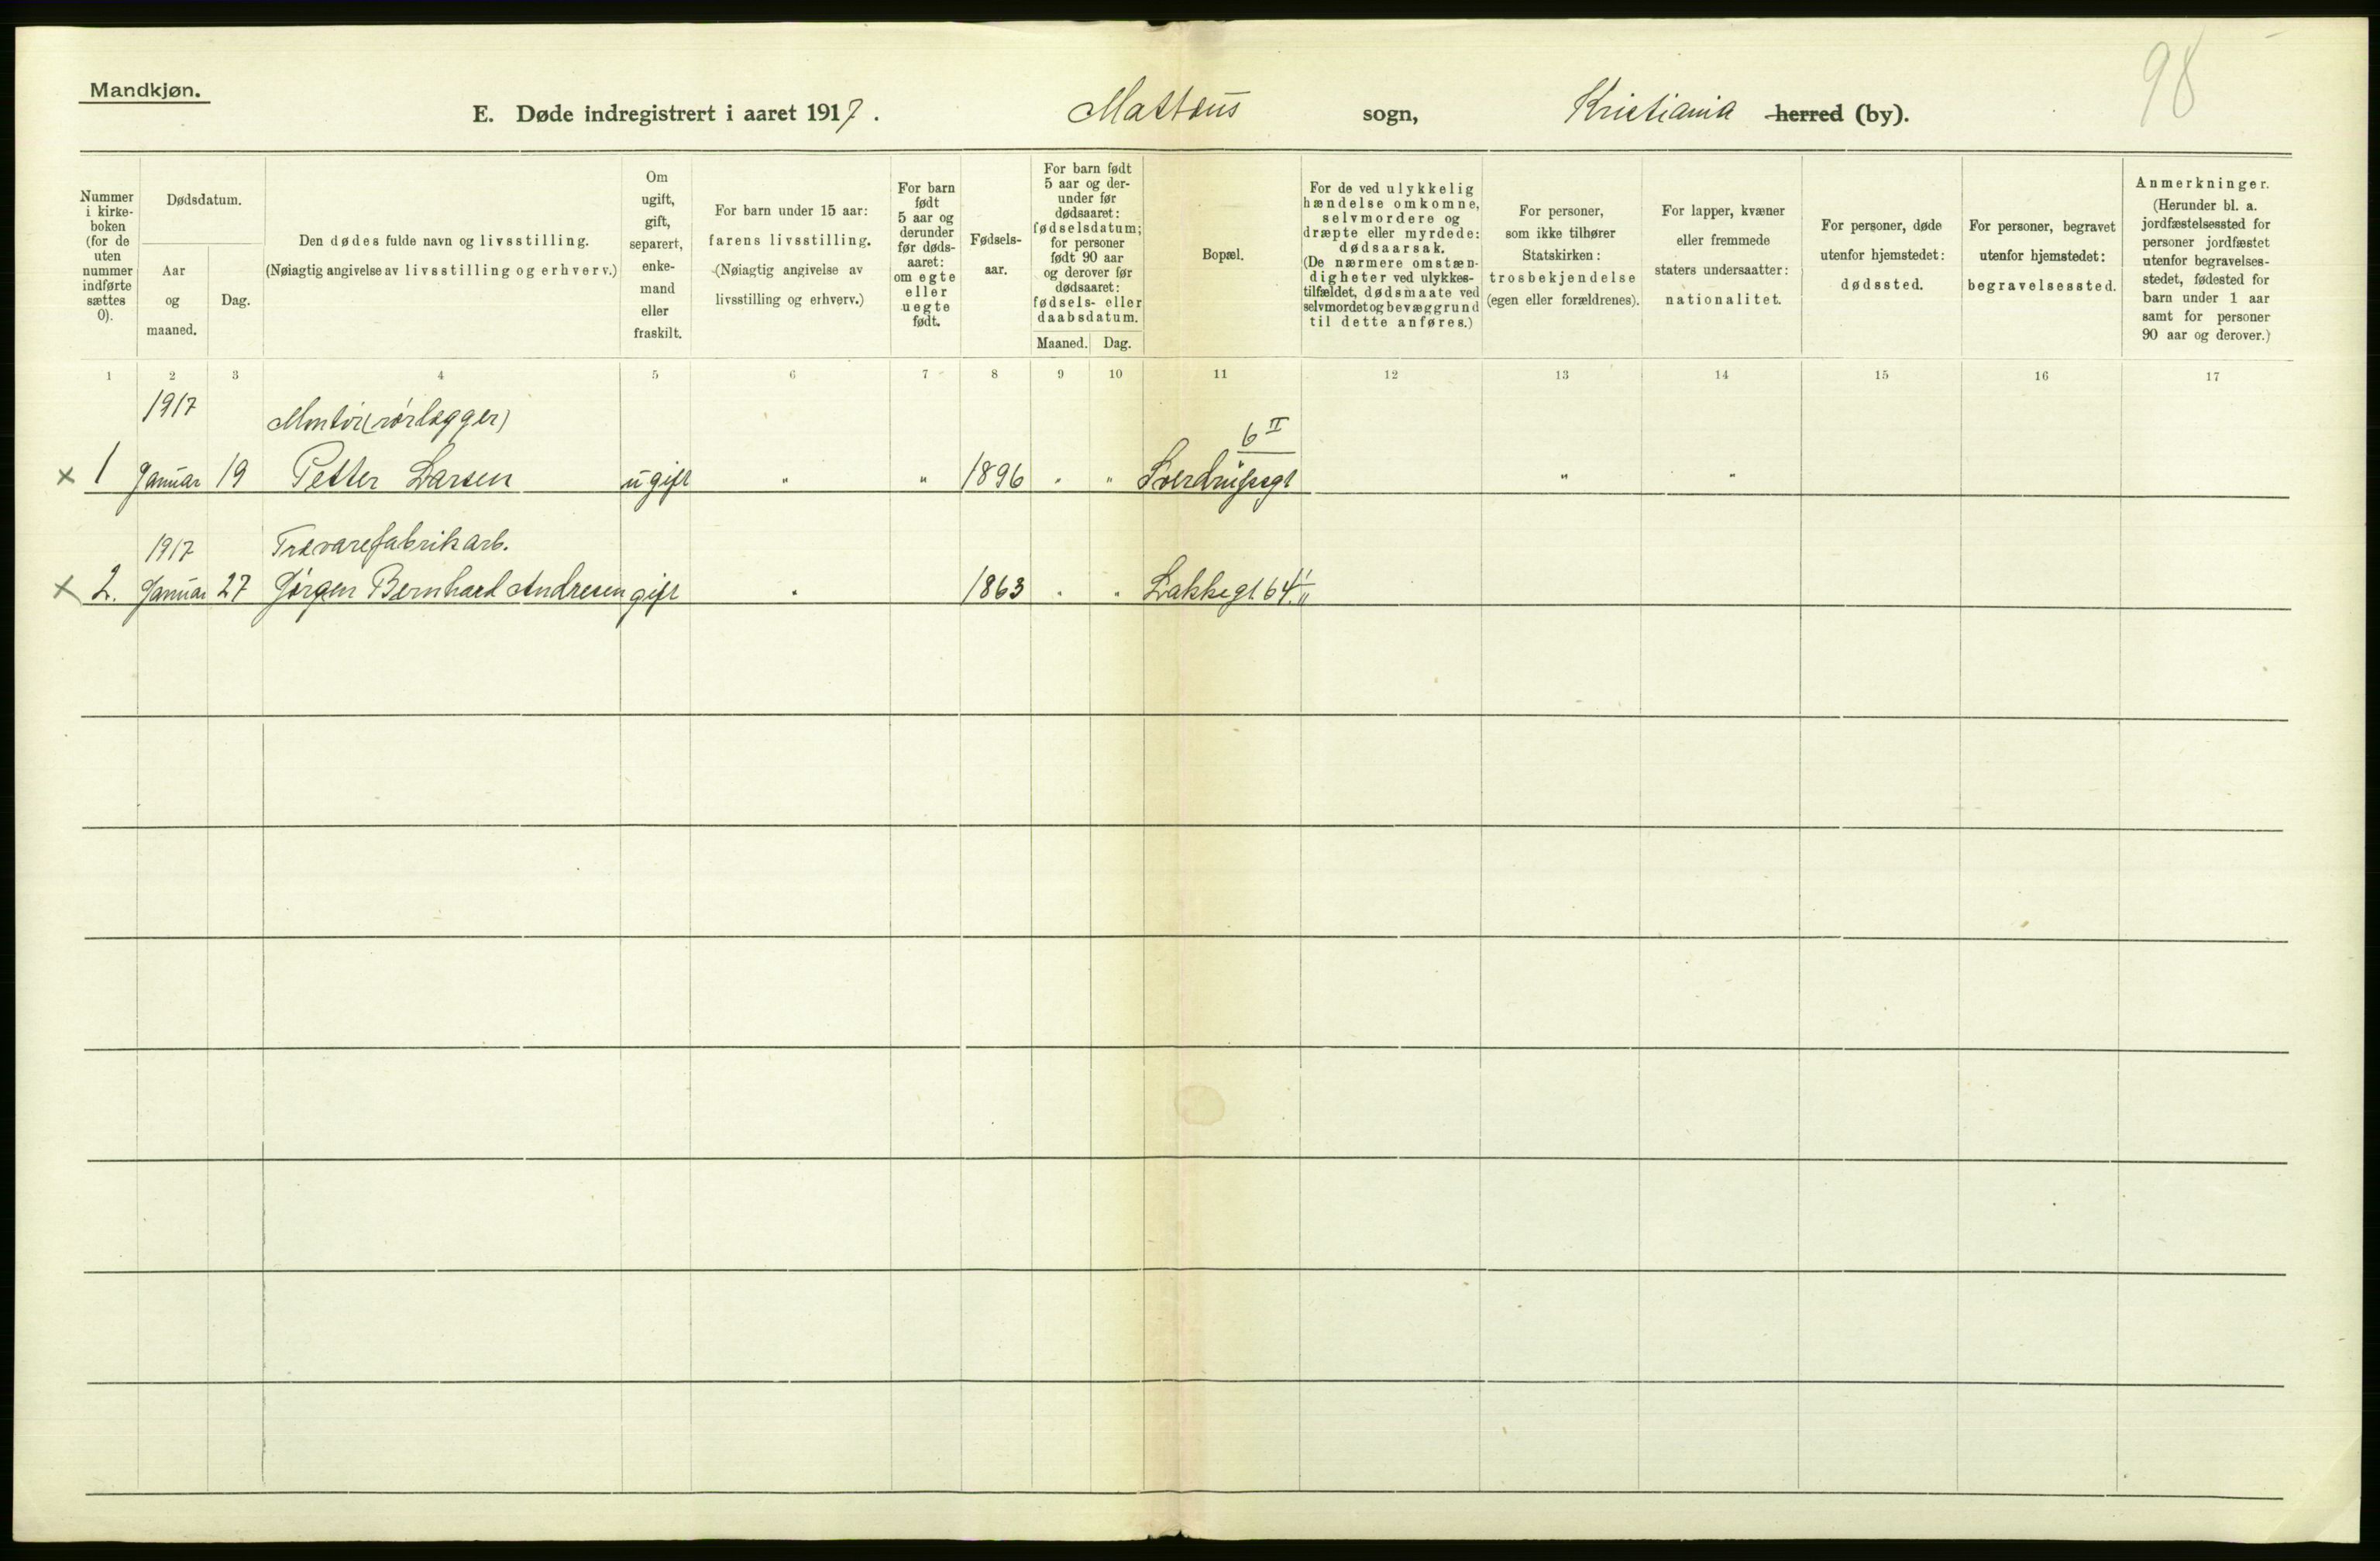 98
Mandkjøn.
E. Døde indregistrert i aaret 1917. Mattæus sogn, Kristiania herred (by).
Nummer i kirke-boken (for de uten nummer indførte sættes 0).
Dødsdatum.
Aar og maaned.
Dag.
Den dødes fulde navn og livsstilling.
(Nøiagtig angivelse av livsstilling og erhverv.)
Om ugift, gift, separert, enke-mand eller fraskilt.
For barn under 15 aar:
farens livsstilling.
(Nøiagtig angivelse av
livsstilling og erhverv.)
For barn født 5 aar og derunder før døds-aaret: om egte eller uegte født.
Fødsels-aar.
For barn født 5 aar og der-under før dødsaaret: fødselsdatum; for personer født 90 aar og derover før dødsaaret: fødsels- eller daabsdatum.
Maaned. Dag.
Bopæl.
For de ved ulykkelig hændelse omkomne, selvmordere og dræpte eller myrdede: dødsaarsak.
(De nærmere omstæn-digheter ved ulykkes-tilfældet, dødsmaate ved selvmordet og bevæggrund til dette anføres.)
For personer, som ikke tilhører Statskirken: trosbekjendelse (egen eller forældrenes).
For lapper, kvæner eller fremmede staters undersaatter: nationalitet.
For personer, døde utenfor hjemstedet: dødssted.
For personer, begravet utenfor hjemstedet: begravelsessted.
Anmerkninger.
(Herunder bl. a. jordfæstelsessted for personer jordfæstet utenfor begravelses-stedet, fødested for barn under 1 aar samt for personer 90 aar og derover.)
1 2 3 4 5 6 7 8 9 10 11 12 13 14 15 16 17
1917 Montør (rørlægger) 6 II
× 1 Januar 19 Petter Larsen ugift " " 1896 " " Sverdrupsgt " "
1917 Trævarefabrikarb.
× 2. Januar 27 Jørgen Bernhard Andresen gift " 1863 " " Lakkegt. 64 II